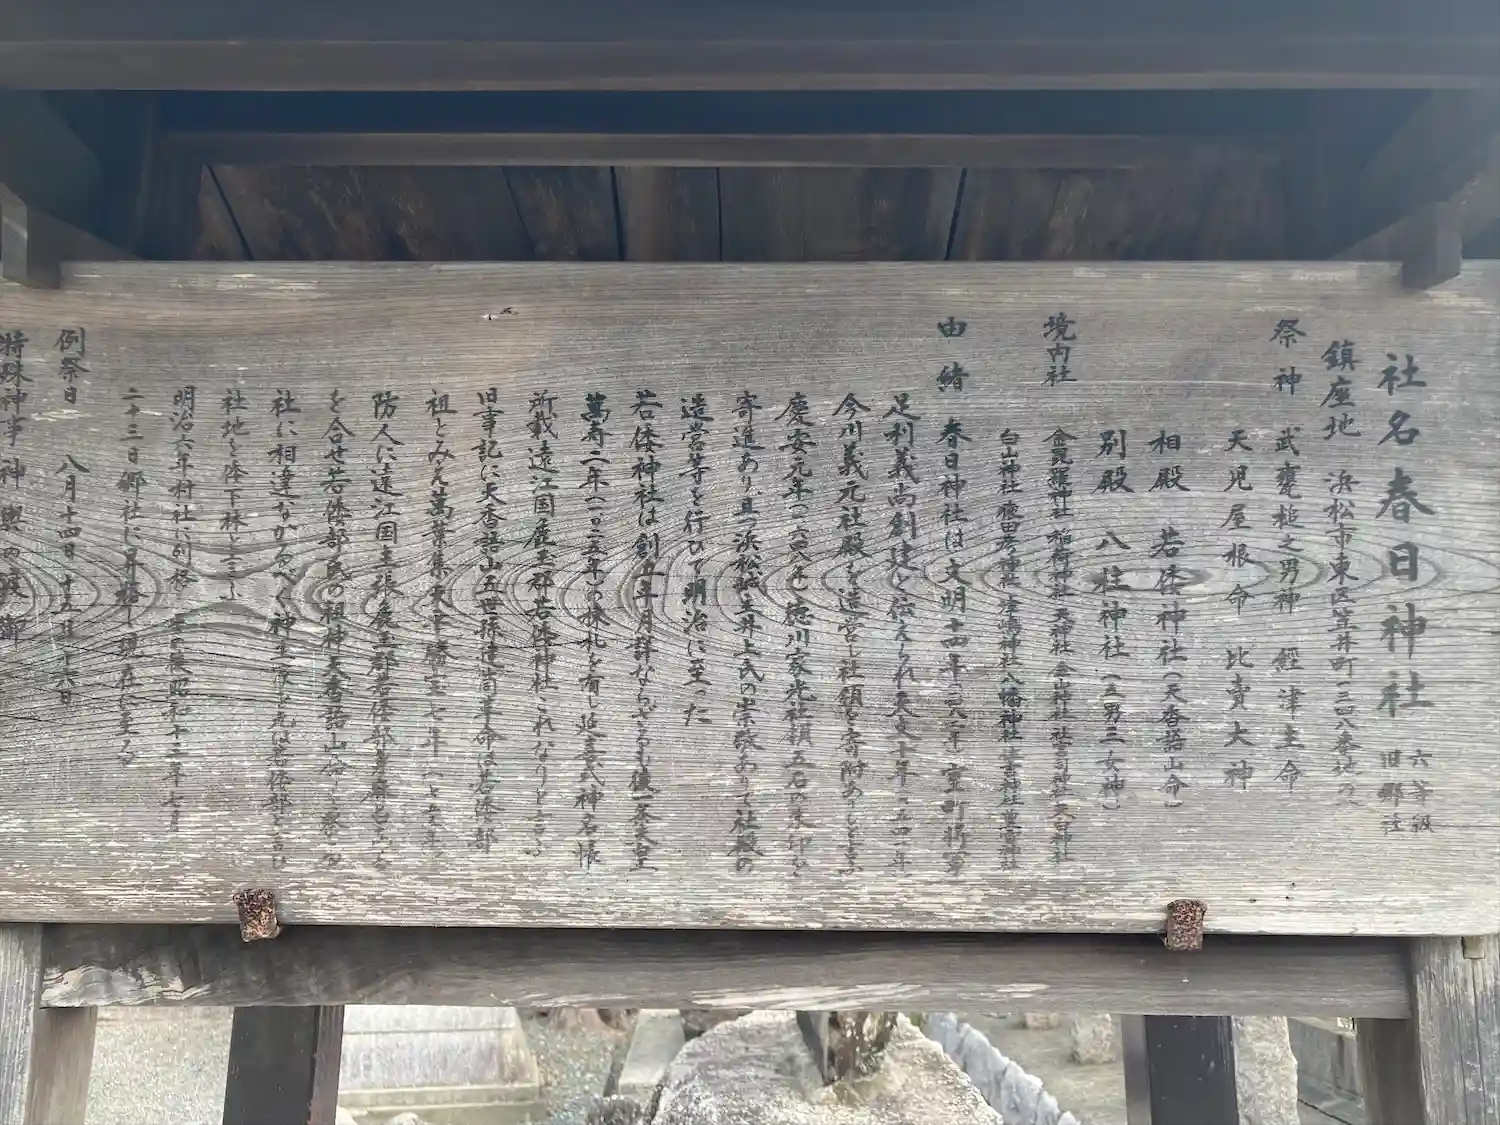 社名春日神社 六等級 旧郷社
鎮座地 浜松市東区笠井町一三四八番地の
祭神 武甕槌之男神 経津主命
天児屋根命 比売大神
相殿 若倭神社(天香語山命)
別殿 八柱神社(五男三女神)
境内社 金毘羅神社 稲荷神社 天神社 金山神社 社宮司神社
白山神社 津島神社 八幡神社
由緒 春日神社は文明十四年(一四八二年)室町将軍
足利義尚創建と伝えられ天文十年(一五四一年)
今川義元社殿を造営し社領を寄附ありと云ふ
慶安元年(一六四八年)徳川家光社領五石の朱印を
寄進あり、且つ浜松城主井上氏の崇敬ありて社殿の
造営等を行ひて明治に至った
若倭神社は創立年月詳ならざるも後一条天皇
萬寿二年(一〇二五年)の棟札を有し延喜式神名帳
所載遠江国麁玉郡若倭神社これなりと言ふ
旧事記に天香語山五世孫建筒草命は若倭部
祖とみえ萬葉集天平勝宝七年(七五五年)
防人に遠江国主張麁玉郡若倭部身麿もらる
を合せ若倭部民の祖神天香語山命を祭る
社に相違なかるべく神主一族も元は若倭部と言ひ
社地を陸下林と云ふ
明治六年村社に列格 其後昭和十二年七月
二十三日郷社に昇格し現在に至る
例祭日 八月十四日 十五日 十六日
特殊神事 神輿の渡御